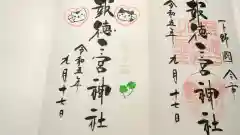 下野國今市
報徳二宮神社
令和五年
九月十七日
報徳二宮神社
令和五年
九月十七日